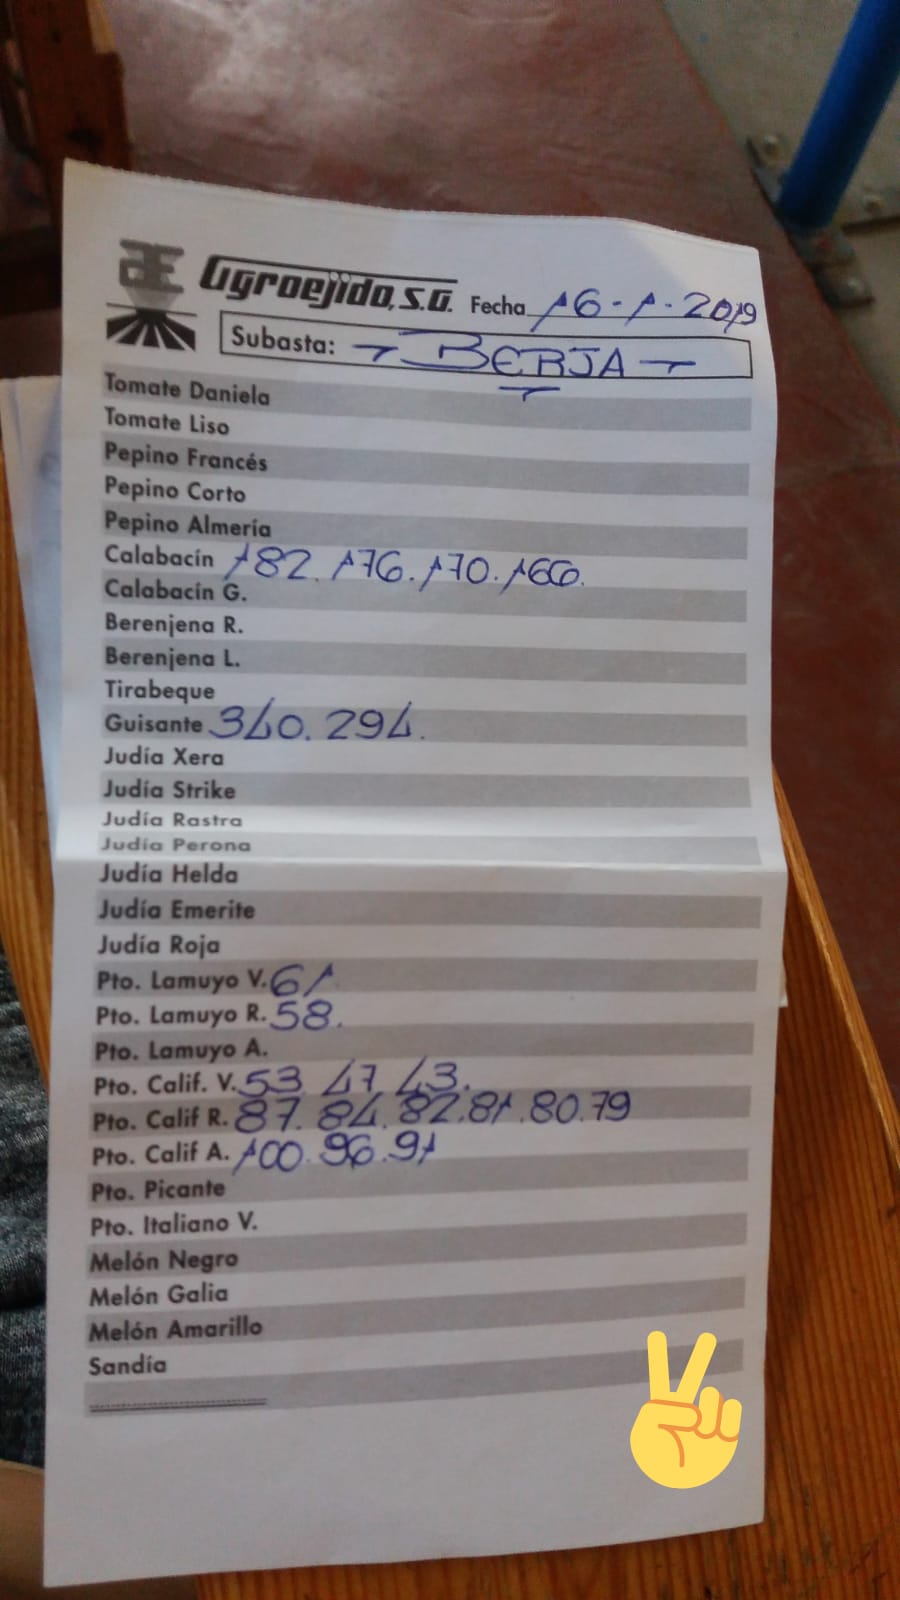 Agroejido, S.A. Fecha 16-1-2019
Subasta: BERJA
Tomate Daniela
Tomate Liso
Pepino Francés
Pepino Corto
Pepino Almería
Calabacín 182. 176. 170. 166.
Calabacín G.
Berenjena R.
Berenjena L.
Tirabeque
Guisante 340. 294.
Judía Xera
Judía Strike
Judía Rastra
Judía Perona
Judía Helda
Judía Emerite
Judía Roja
Pto. Lamuyo V. 61
Pto. Lamuyo R. 58.
Pto. Lamuyo A.
Pto. Calif. V. 53. 47. 43.
Pto. Calif R. 87. 84. 82. 81. 80. 79
Pto. Calif A. 100. 96. 91
Pto. Picante
Pto. Italiano V.
Melón Negro
Melón Galia
Melón Amarillo
Sandía